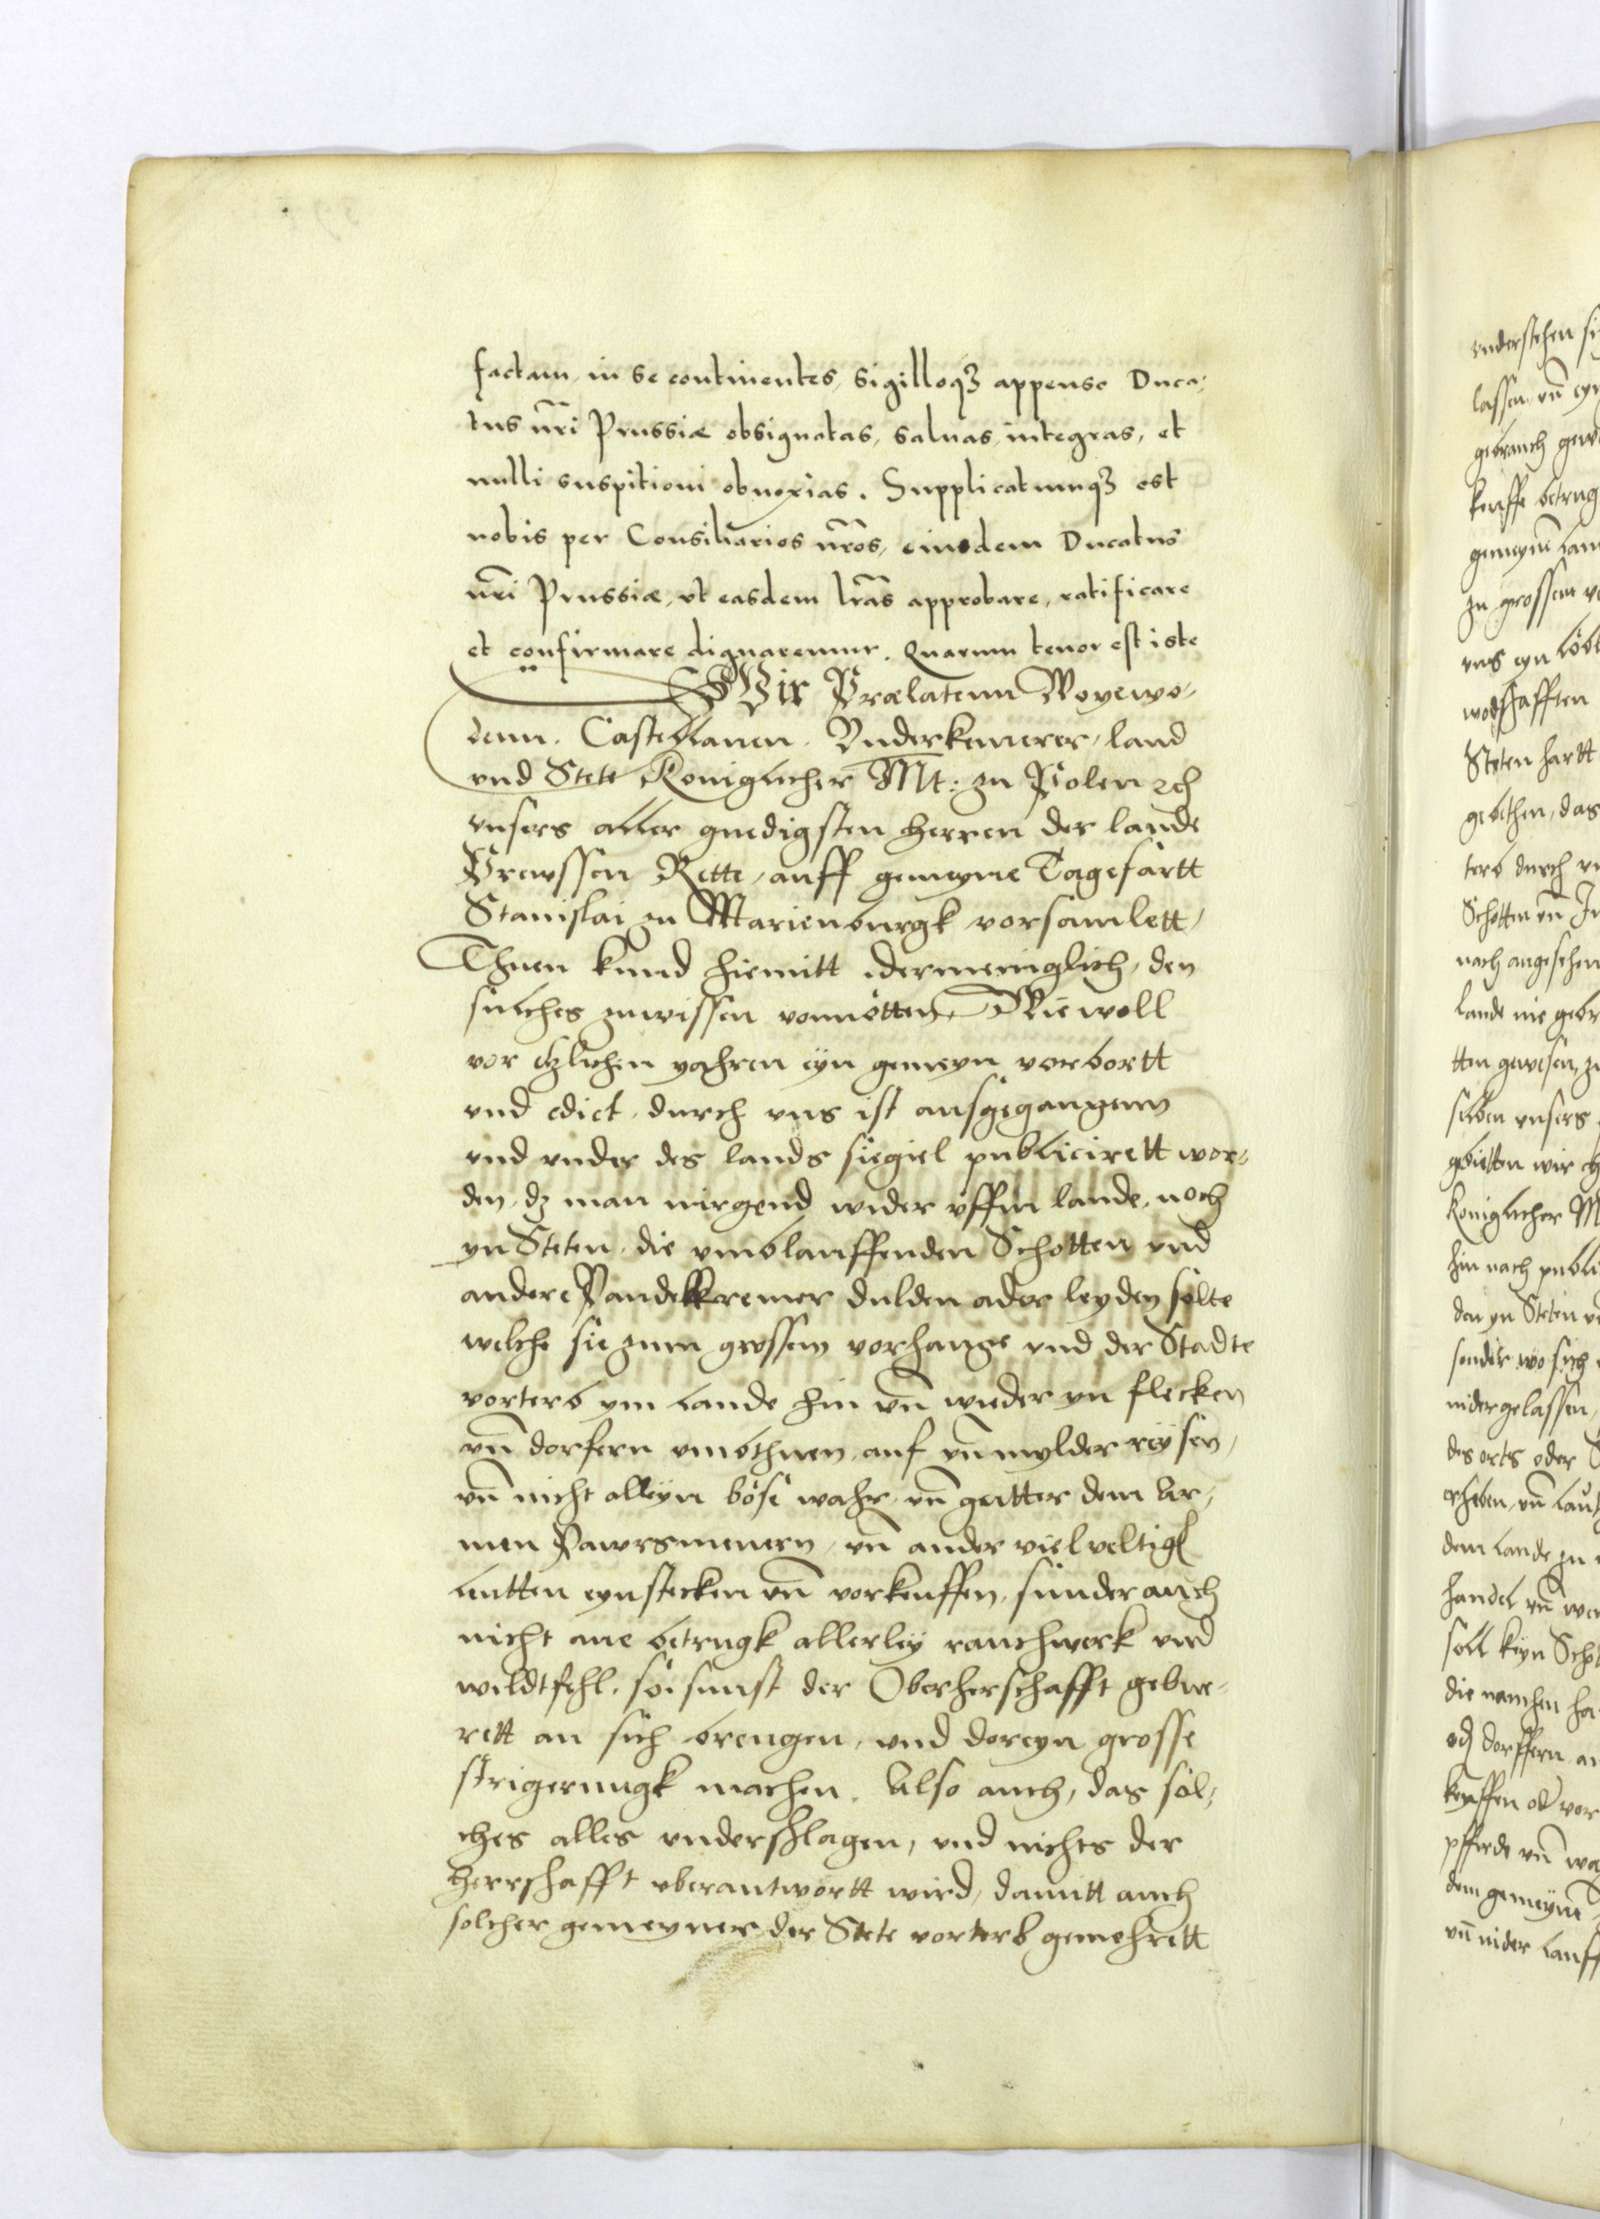 factam, in se continentes, sigilloqꝫ appenso Duca-
tus nr̃i Prussiæ obsignatas, saluas, integras, et
nulli suspitioni obnoxias. Supplicatumqꝫ est
nobis per Consiliarios nr̃os, eiusdem Ducatus
nr̃i Prussiæ, vt easdem lr̃as approbare, ratificare
et confirmare dignaremur. Quarum tenor est iste
Wir Prælatenn Woyewo-
denn, Castellanen, Vnderkemerer, land
vnd Stete Koniglicher Mt: zu Polen ꝛc̃
vnsers aller gnedigsten herren der lande
Prewssen Rette, auff gemeyne Tagefartt
Stanislai zu Marienburgk vorsamlett,
Thuen kund hiemitt idermeniglich, den
sulches zuwissen vonnötten, Wiewoll
vor etzlichen yahren eyn gemeyn vorbortt
vnd edict, durch vns ist ausgegangenn
vnd vnder des lands siegiel publicirett wor-
den, dz man nirgend wider vffm lande, noch
yn Steten, die vmblauffenden Schotten vnd
andere Paudelkremer dulden ader leyden solte
welche sie zum grossem vorhange vnd der Stadte
vorterb ym lande hin vn̄ wieder yn flecken
vn̄ dorfern vmbthuen, auf vn̄ nyder reysen,
vn̄ nicht alleyn böse wahr vn̄ gutter dem Ar-
men Pawrsmenern, vn̄ ander vielveltigl
lutten eynstecken vn̄ vorkeuffen, sunder auch
nicht ane betrugk allerley rauchwerk vnd
wildtfehl, so sunst der Oberherschafft gebue-
rett an sich brengen, vnd doreyn grosse
steigerungk machen. Also auch, das sol-
ches alles vnderschlagen, vnd nichts der
herrschafft vberantwortt wird, damitt auch
solcher gemeyner der Stete vorterb gemehrett
vnderstehen
lassen, vn̄
gebrauch
keuffe betrug
gemeyn̄
zu grossem
vns eyn
wodschafften
Steten hartt
gebethen, das
terb durch
Schotten vn̄
nach angesehen
lande nie
tten gewesen,
selben vnsers
gebietten wir
Koniglicher
hin nach
den yn Steten
sonder wo sich
nidergelassen,
des orts oder
erheben, vn̄
dem lande zu
handel vn̄
soll keyn
die
dorffern
keuffen
pferde vn̄
dem gemeyn̄
vn̄ nider